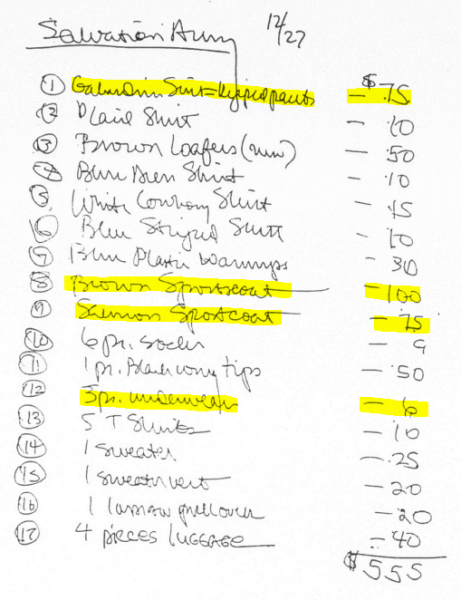 Salvation Army 12/27
① Gabardine Suit - striped pants - $75
② Plaid Shirt - 10
③ Brown Loafers (new) - 50
④ Blue Shirt - 10
⑤ White Cowboy Shirt - 15
⑥ Blue Striped Shirt - 10
⑦ Blue Plastic Warmups - 30
⑧ Brown Sportscoat - 100
⑨ Salmon Spotcoat - 75
⑩ 6 pr. socks - 9
⑪ 1 pr. Black wing tips - 50
⑫ 3 pr. underwear - 6
⑬ 5 T Shirts - 10
⑭ 1 sweater - 25
⑮ 1 sweatervest - 20
⑯ 1 pullover - 20
⑰ 4 pieces LUGGAGE - 40
$555